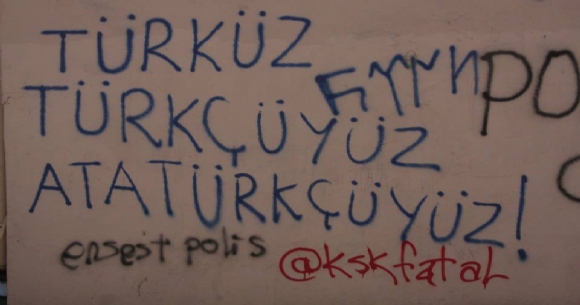 TÜRKÜZ
TÜRKÇÜYÜZ
ATATÜRKÇÜYÜZ!
ensest polis
@kskfatal